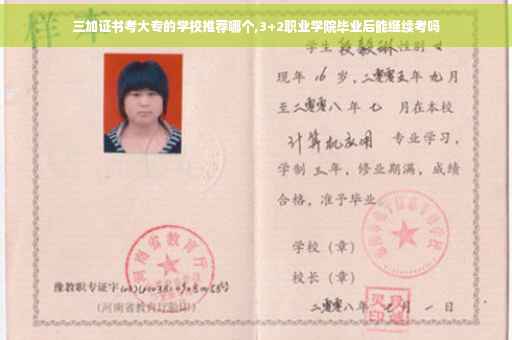 三加证书考大专的学校推荐哪个,3+2职业学院毕业后能继续考吗
样本
学生 段毅琳 性别 女
现年 16 岁，二零零五年 九月
至二零零八年 七 月在本校
计算机应用 专业学习，
学制 三年，修业期满，成绩
合格，准予毕业。
学校（章）
河南省教育厅
校长（章）
豫教职专证字
(河南省教育厅验印)
二零零八年 七月 一日